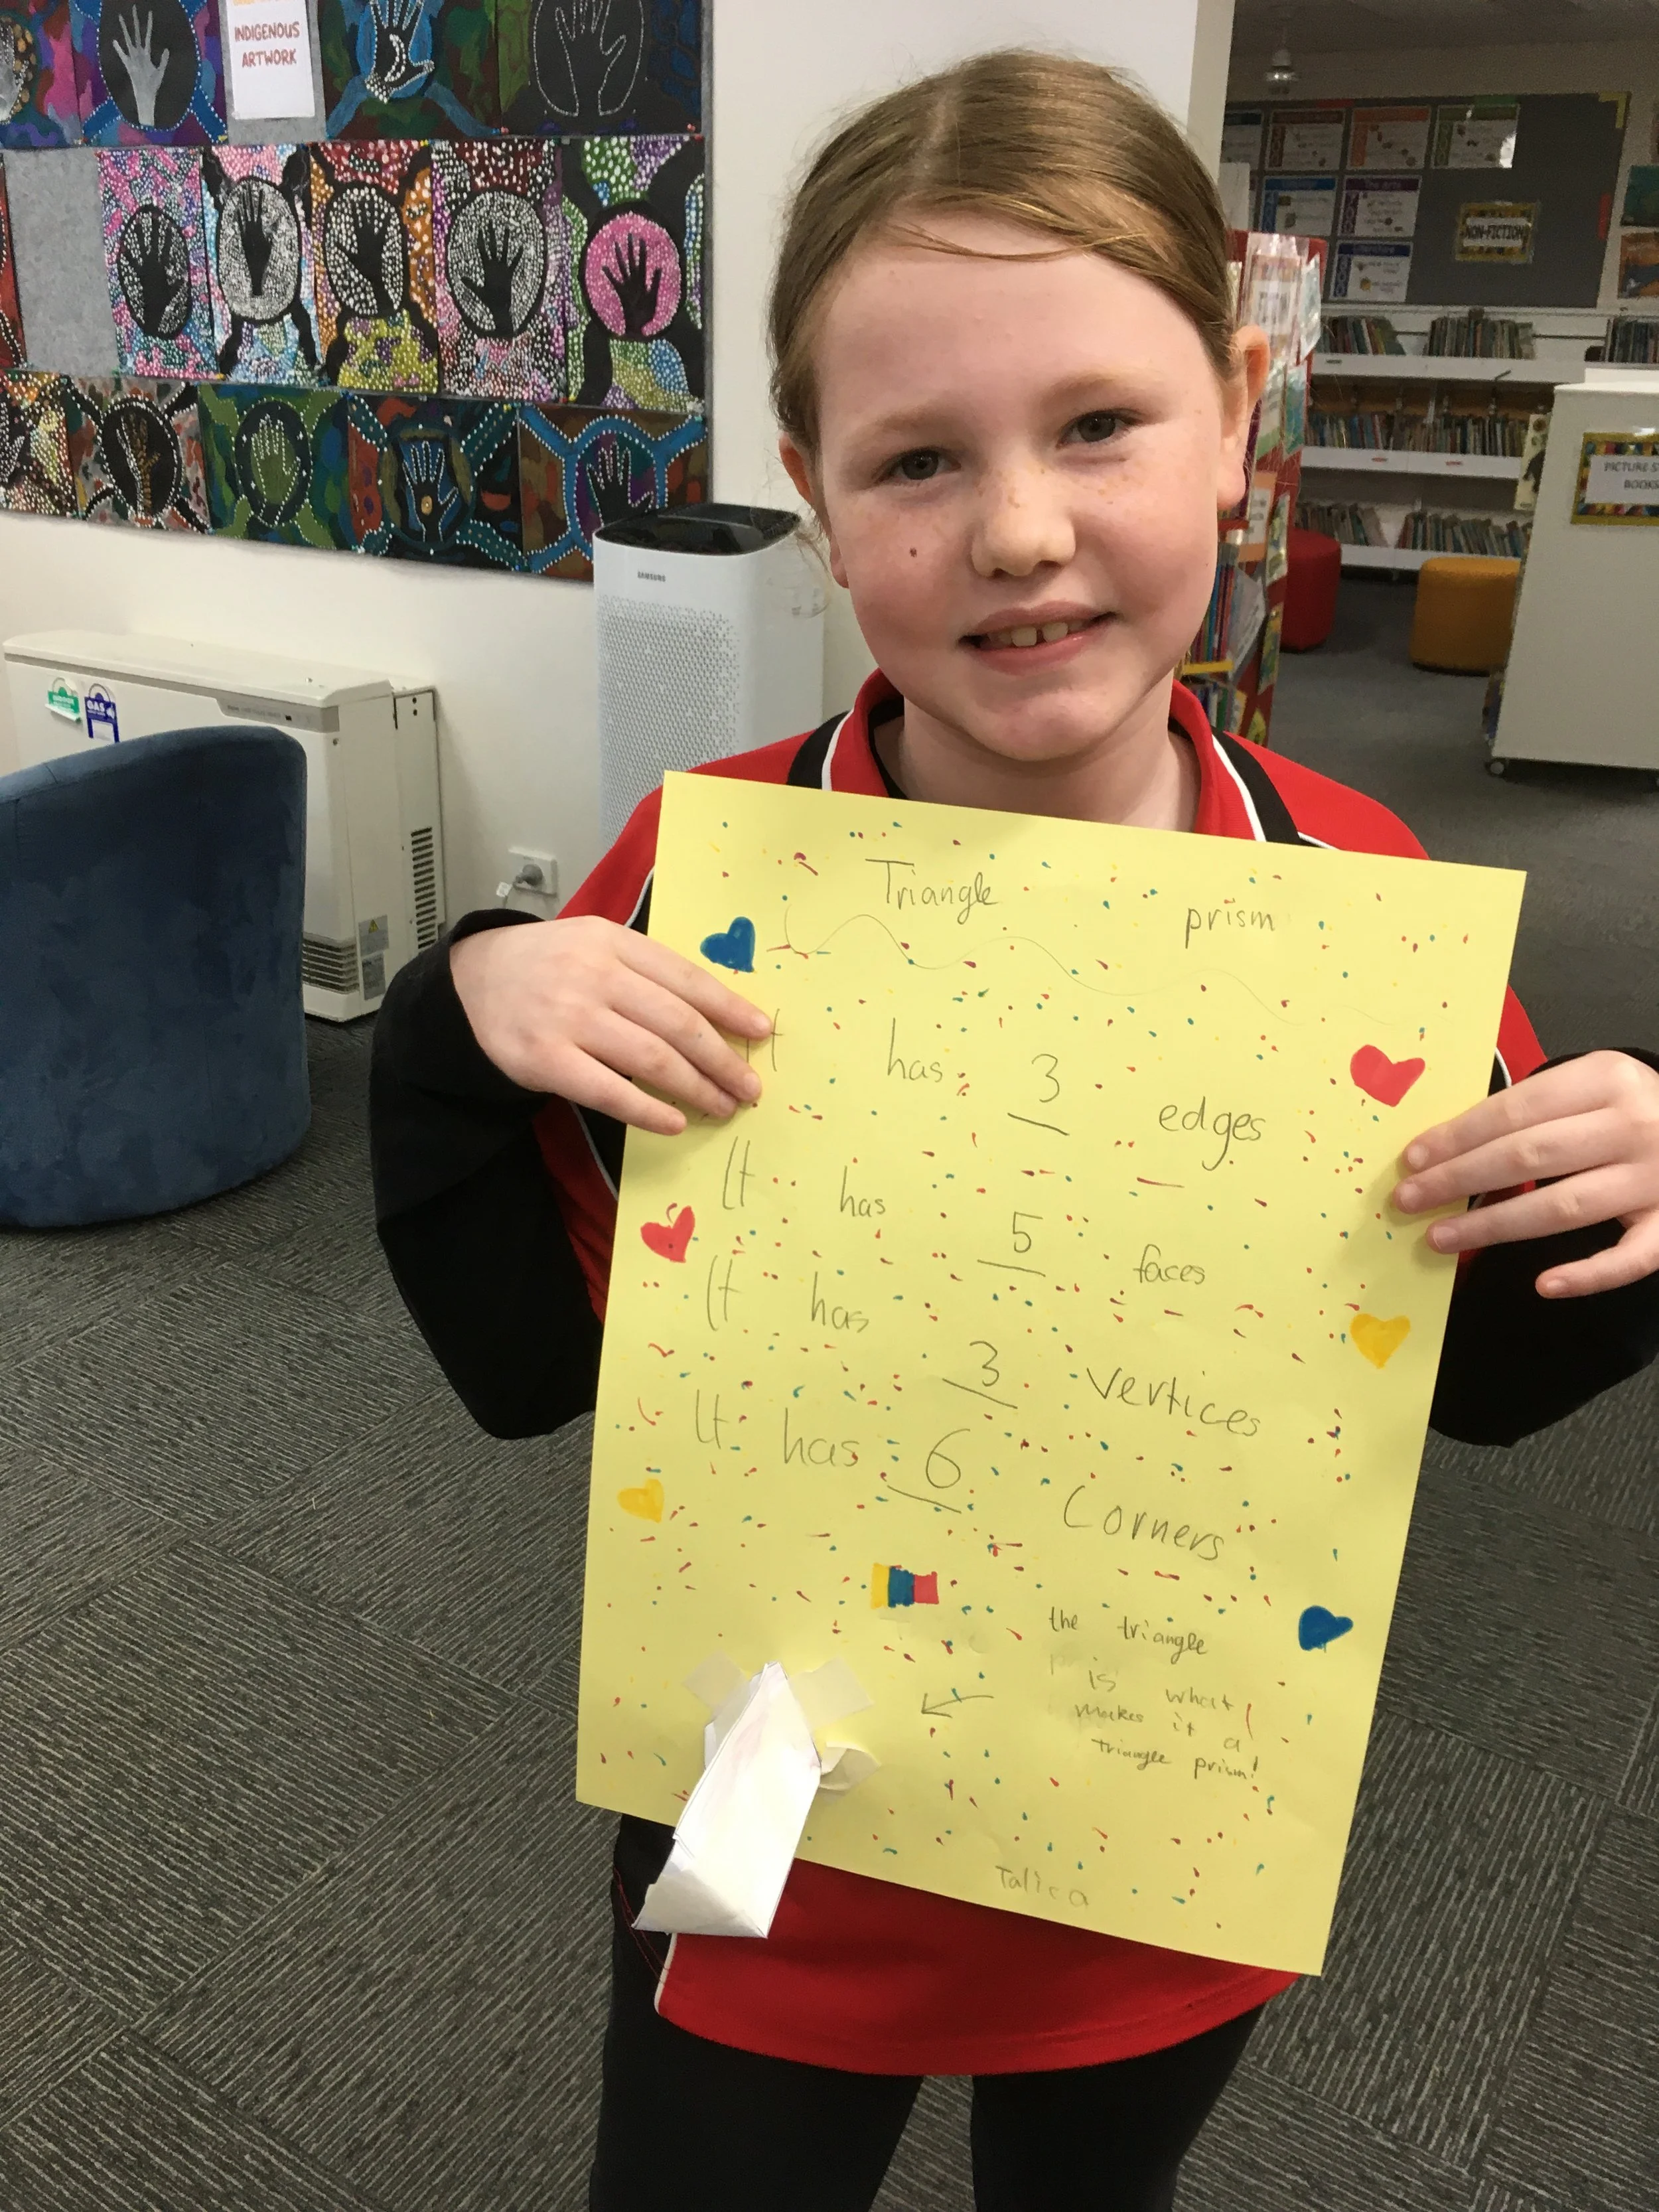 INDIGENOUS
ARTWORK
NON-FICTION
BOOKS
SAMSUNG
GAS
Triangle prism
It has 3 edges
It has 5 faces
It has 3 vertices
It has 6 Corners
the triangle
is what
makes it a
triangle prism!